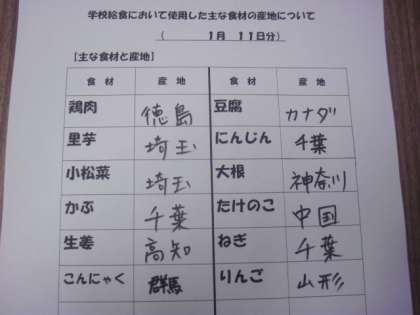 学校給食において使用した主な食材の産地について
（　　　1月　11日分）
【主な食材と産地】
食 材　産 地　食 材　産 地
鶏肉　徳島　豆腐　カナダ
里芋　埼玉　にんじん　千葉
小松菜　埼玉　大根　神奈川
かぶ　千葉　たけのこ　中国
生姜　高知　ねぎ　千葉
こんにゃく　群馬　りんご　山形